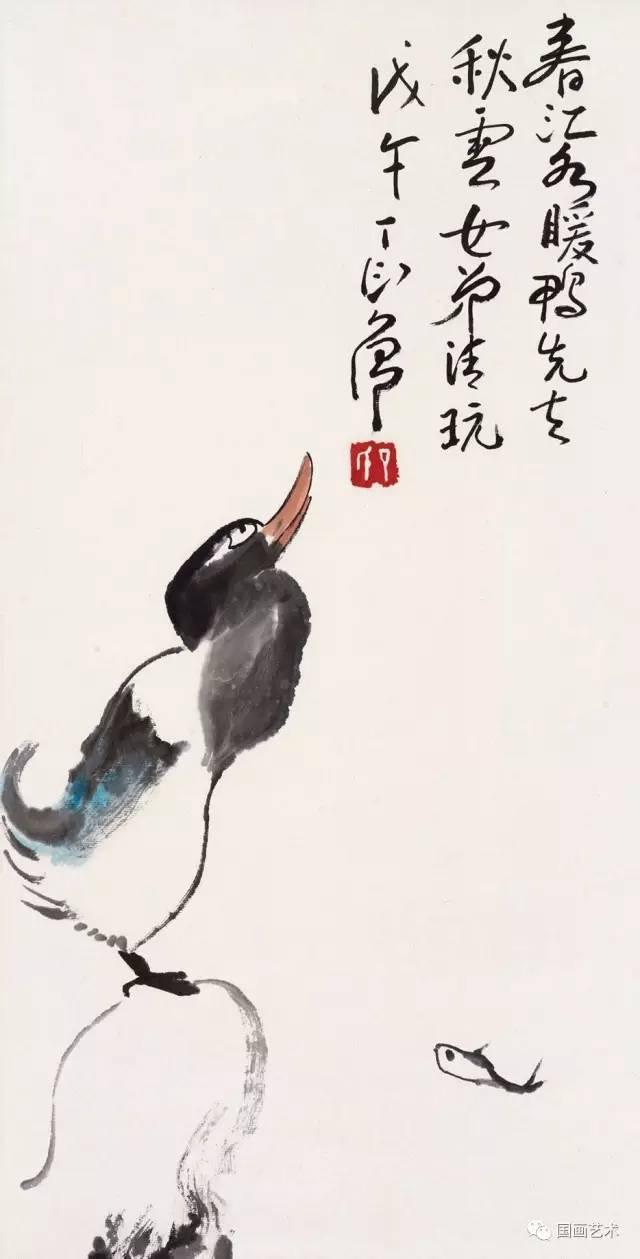 春江水暖鴨先知
秋雲女弟清玩
戊午丁衍庸
国画艺术